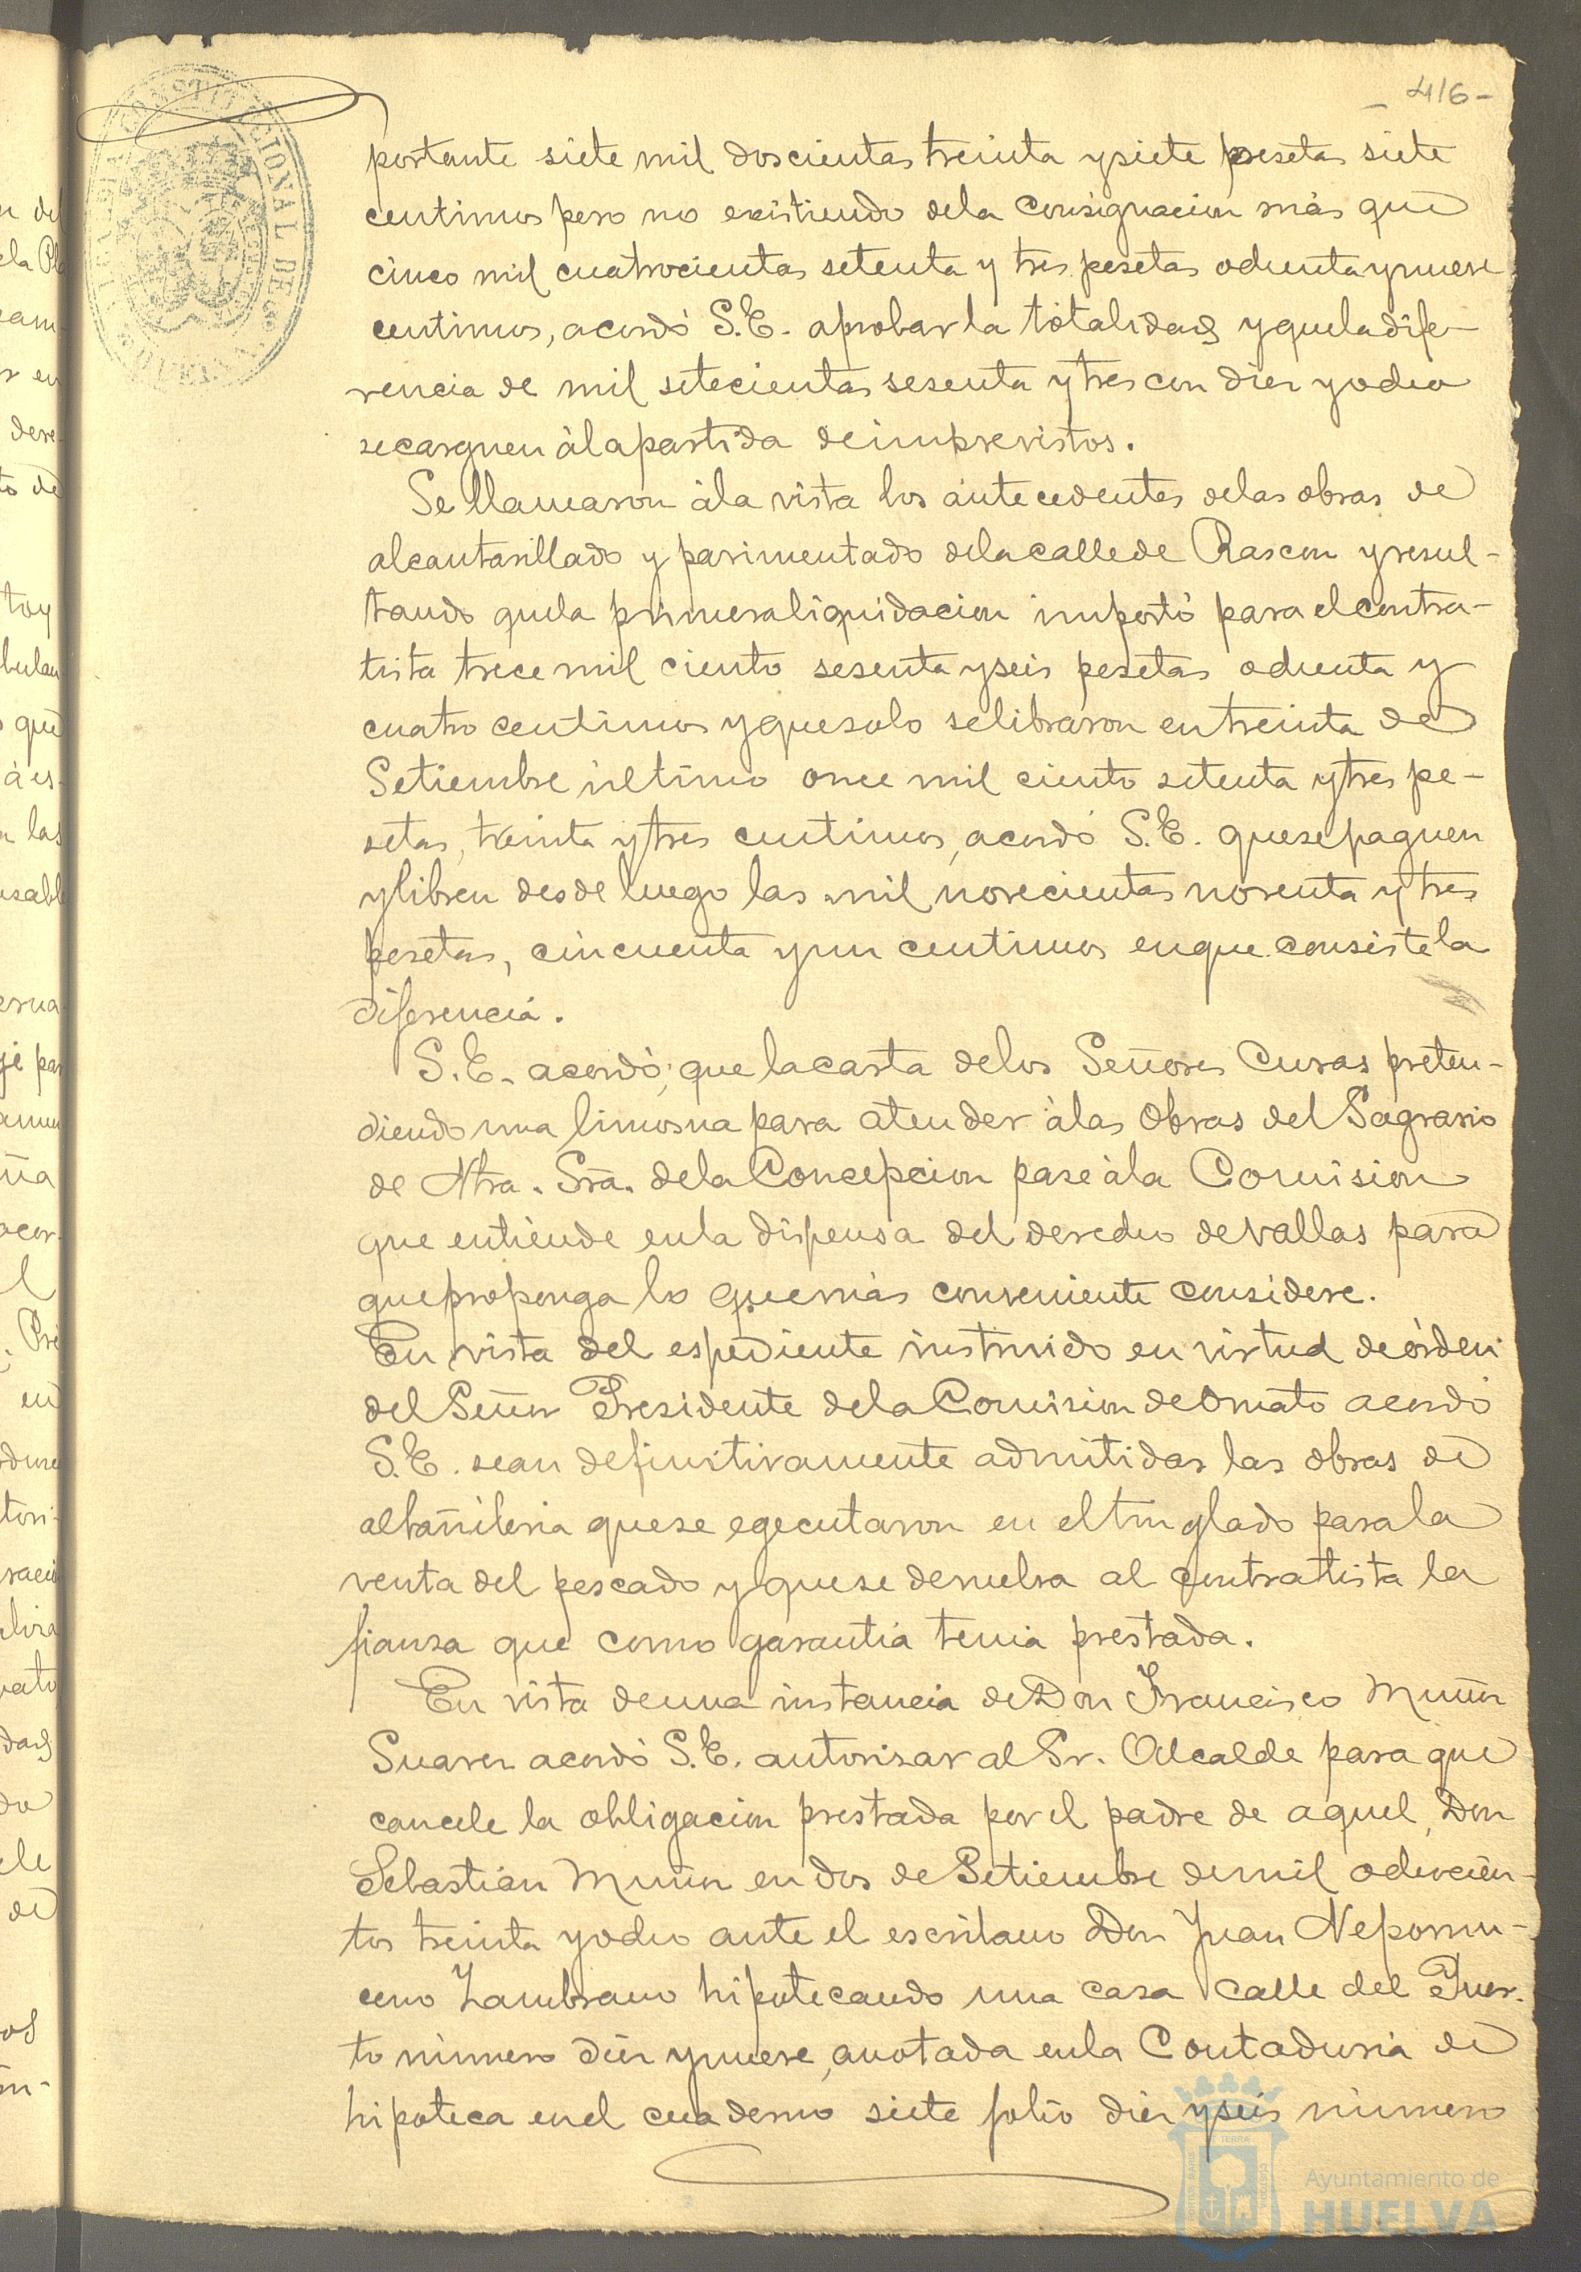 - 416 -
portante siete mil doscientas treinta y siete pesetas siete
centimos pero no existiendo de la consignacion más que
cinco mil cuatrocientas setenta y tres pesetas ochenta y nueve
centimos, acordó S.E. aprobar la totalidad y que la dife-
rencia de mil setecientas sesenta y tres con diez y ocho
se carguen á la partida de imprevistos.
Se llamaron á la vista los antecedentes de las obras de
alcantarillado y pavimentado de la calle de Rascon y resul-
tando que la primera liquidacion importó para el contra-
tista trece mil ciento sesenta y seis pesetas ochenta y
cuatro centimos y que solo se libraron en treinta de
Setiembre último once mil ciento setenta y tres pe-
setas, treinta y tres centimos, acordó S.E. que se paguen
y libren desde luego las mil novecientas noventa y tres
pesetas, cincuenta y un centimos en que consiste la
diferencia.
S.E. acordó; que la carta de los Señores Curas preten-
diendo una limosna para atender á las obras del Sagrario
de Ntra. Srā. de la Concepcion pase á la Comision
que entiende en la dispensa del derecho de vallas para
que proponga lo que más conveniente considere.
En vista del espediente instruido en virtud de órden
del Señor Presidente de la Comision de Ornato acordó
S.E. sean definitivamente admitidas las obras de
albañileria que se egecutaron en el tinglado para la
venta del pescado y que se devuelva al contratista la
fianza que como garantia tenia prestada.
En vista de una instancia de Don Francisco Muñiz
Suarez acordó S.E. autorizar al Sr. Alcalde para que
cancele la obligacion prestada por el padre de aquel, Don
Sebastián Muñiz en dos de Setiembre de mil ochocien-
tos treinta y ocho ante el escribano Don Juan Nepomu-
ceno Zambrano hipotecando una casa calle del Puer-
to número diez y nueve, anotada en la Contaduria de
hipoteca en el cuaderno siete folio diez y seis número
Ayuntamiento de
HUELVA